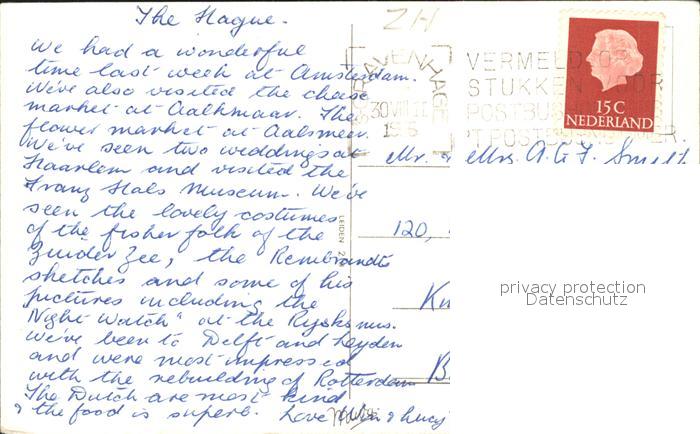 The Hague.
ZH
We had a wonderful
time last week at Amsterdam.
We've also visited the cheese
market at Aalkmaar. The
flower market at Aalsmeer.
We've seen two weddings at
Haarlem and visited the
Franz Hals Museum. We've
seen the lovely costumes
of the fisher folk of the
Zuider Zee, the Rembrandts
sketches and some of his
pictures including the
"Night Watch" at the Ryksmus.
We've been to Delft and Leyden
and were most impressed
with the rebuilding of Rotterdam
The Dutch are most kind
& the food is superb. Love & Lucy
'S GRAVENHAGE
30 VIII
VERMELD OP
STUKKEN VOOR
POSTBUS
'T POSTBUSNUMMER.
15 C
NEDERLAND
Mr. & Mrs. A. G. F. Smith
120,
LEIDEN
privacy protection
Datenschutz